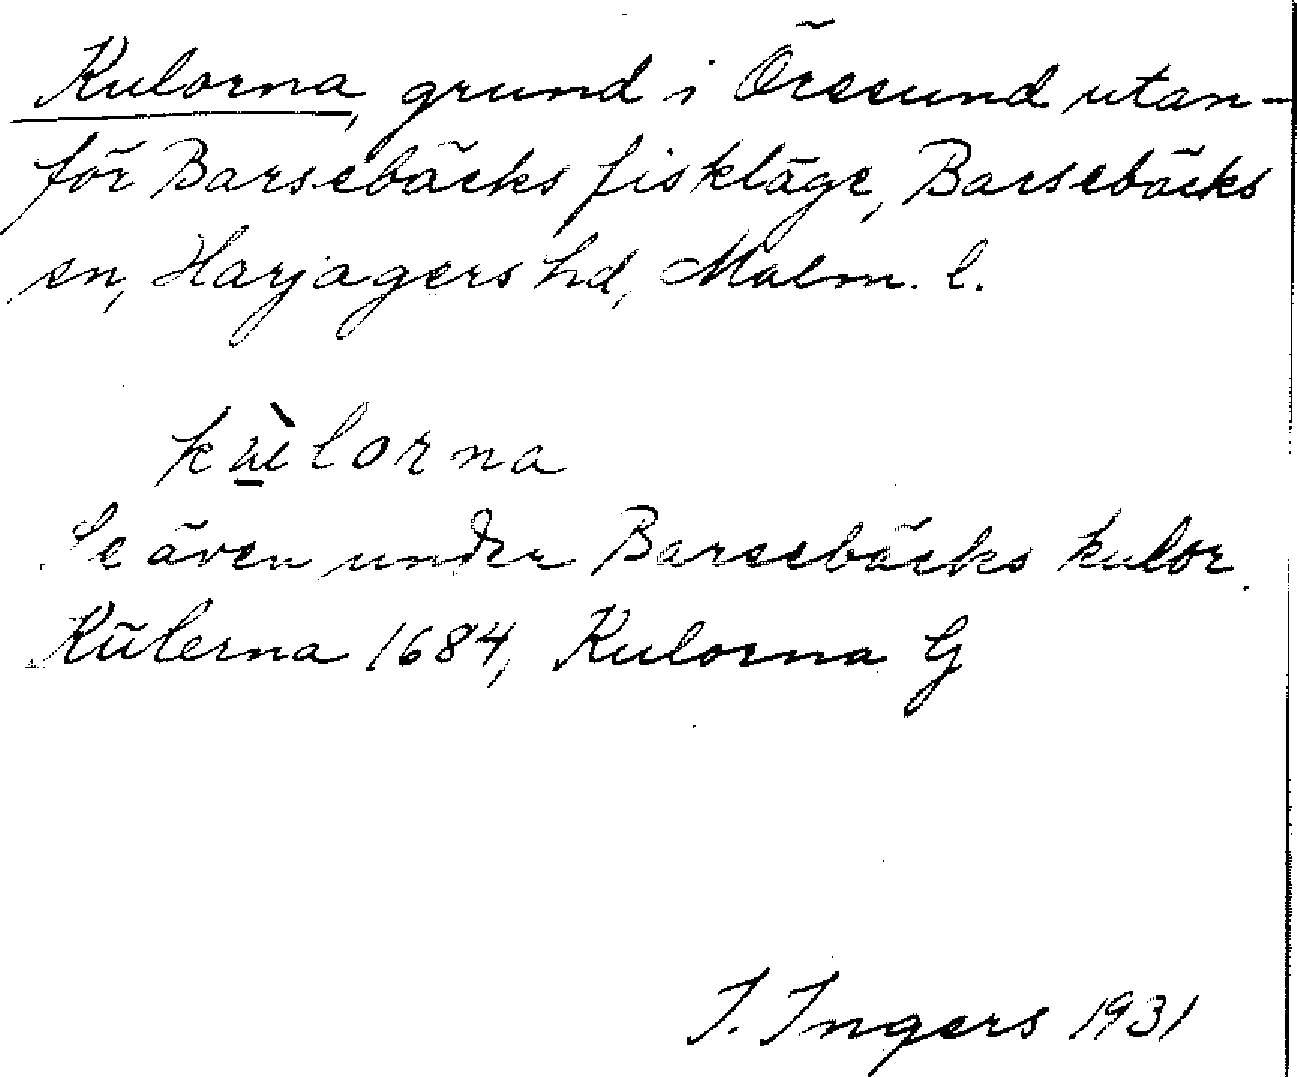 Kulorna, grund i Öresund utan-
för Barsebäcks fiskläge, Barsebäcks
sn, Harjagers hd, Malm. l.
kùlorna
Se även under Barsebäcks kulor.
Kūlerna 1684, Kulorna G
I. Ingers 1931